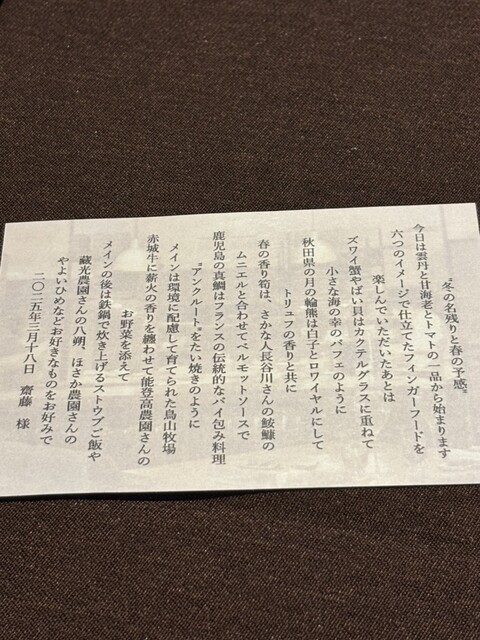 “冬の名残りと春の予感”
今日は雲丹と甘海老とトマトの一品から始まります
六つのイメージで仕立てたフィンガーフードを
楽しんでいただいたあとは
ズワイ蟹やばい貝はカクテルグラスに重ねて
小さな海の幸のパフェのように
秋田県の月の輪熊は白子とロワイヤルにして
トリュフの香りと共に
春の香り筍は、さかな人長谷川さんの鮟鱇の
ムニエルと合わせてベルモットソースで
鹿児島の真鯛はフランスの伝統的なパイ包み料理
“アンクルート”をたい焼きのように
メインは環境に配慮して育てられた鳥山牧場
赤城牛に薪火の香りを纏わせて能登高農園さんの
お野菜を添えて
メインの後は鉄鍋で炊き上げるストウブご飯や
蔵光農園さんの八朔、ほさか農園さんの
やよいひめなどお好きなものをお好みで
二〇二五年三月十八日　齋藤　様